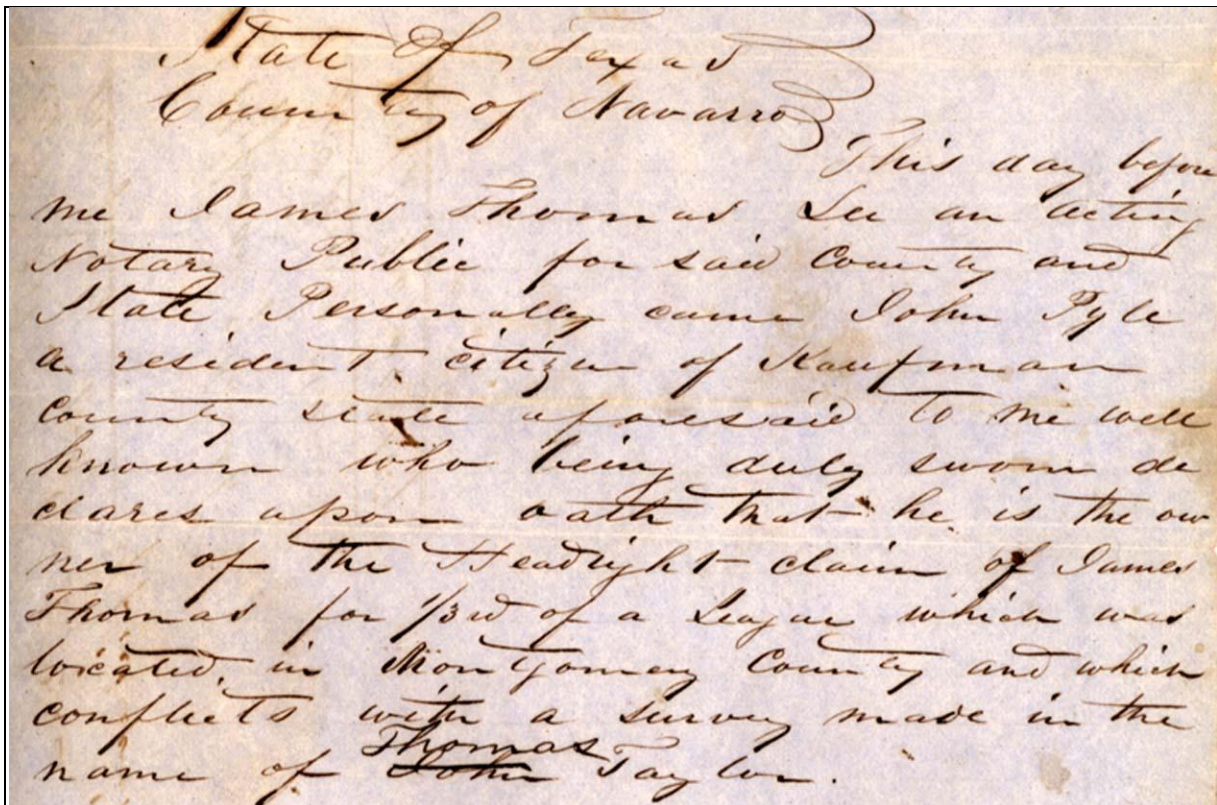 State of Texas
County of Navarro
This day before
me James Thomas Lee an acting
Notary Public for said County and
State Personally came John Pyle
a resident citizen of Kaufman
county state aforesaid to me well
known who being duly sworn de
clares upon oath that he is the ow
ner of the Headright claim of James
Thomas for 1/3rd of a League which was
located in Montgomey County and which
conflicts with a survey made in the
name of John Thomas Taylor.